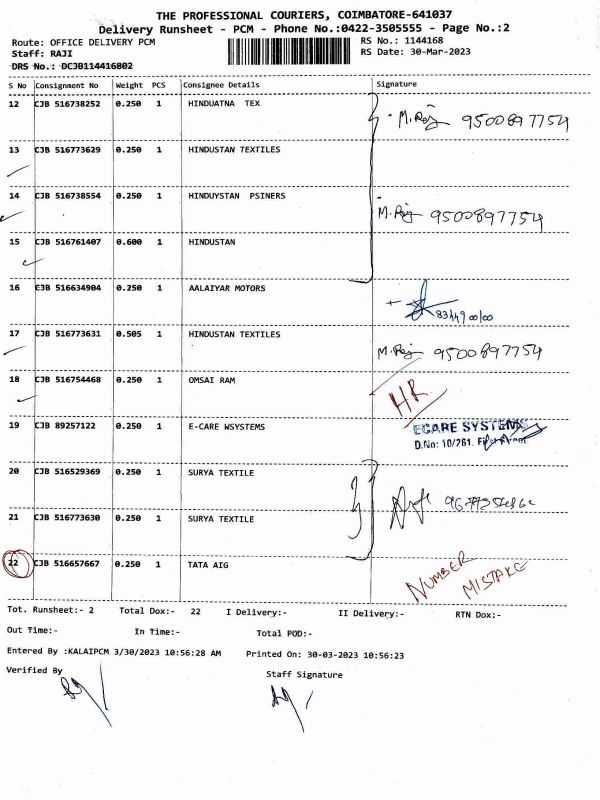 THE PROFESSIONAL COURIERS, COIMBATORE-641037
Delivery Runsheet - PCM - Phone No.:0422-3505555 - Page No.:2
Route: OFFICE DELIVERY PCM
RS No.: 1144168
Staff: RAJI
RS Date: 30-Mar-2023
DRS No.: DCJB114416802
S No Consignment No Weight PCS Consignee Details Signature
12 CJB 516738252 0.250 1 HINDUATNA TEX
M. Raj 9500897754
13 CJB 516773629 0.250 1 HINDUSTAN TEXTILES
14 CJB 516738554 0.250 1 HINDUYSTAN PSINERS
M. Raj 9500897754
15 CJB 516761407 0.600 1 HINDUSTAN
16 CJB 516634904 0.250 1 AALAIYAR MOTORS
17 CJB 516773631 0.505 1 HINDUSTAN TEXTILES
M. Raj 9500897754
18 CJB 516754468 0.250 1 OMSAI RAM
HR
19 CJB 89257122 0.250 1 E-CARE WSYSTEMS
ECARE SYSTEMS
D.No: 10/261.
20 CJB 516529369 0.250 1 SURYA TEXTILE
21 CJB 516773630 0.250 1 SURYA TEXTILE
22 CJB 516657667 0.250 1 TATA AIG
NUMBER
MISTAKE
Tot. Runsheet:- 2 Total Dox:- 22 I Delivery:- II Delivery:- RTN Dox:-
Out Time:- In Time:- Total POD:-
Entered By :KALAIPCM 3/30/2023 10:56:28 AM Printed On: 30-03-2023 10:56:23
Verified By Staff Signature